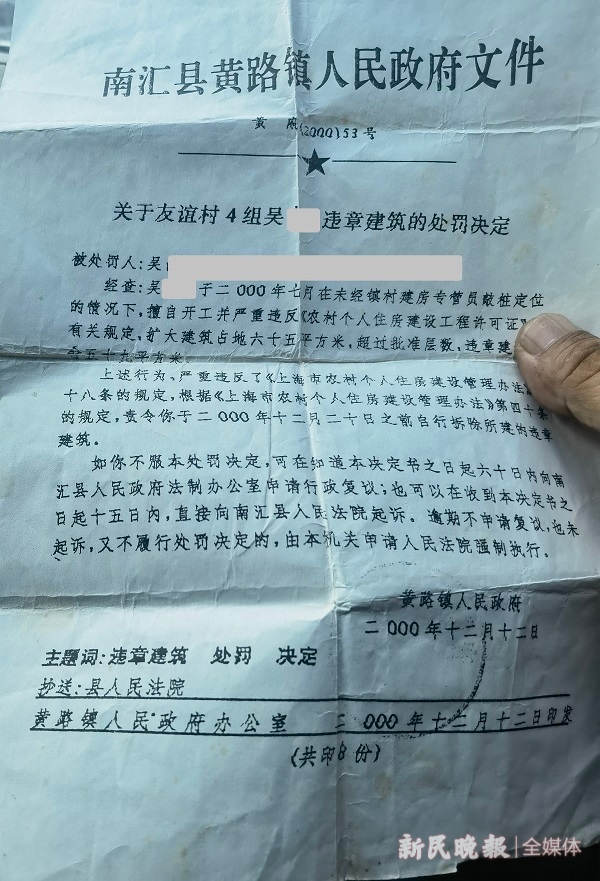 南汇县黄路镇人民政府文件
黄府(2000)53号
关于友谊村4组吴 违章建筑的处罚决定
被处罚人:吴
经查:吴 于二000年七月在未经镇村建房专管员敲桩定位
的情况下,擅自开工并严重违反《农村个人住房建设工程许可证》
有关规定,扩大建筑占地六十五平方米,超过批准层数,违章建
五十九平方米。
上述行为,严重违反了《上海市农村个人住房建设管理办法》
十八条的规定,根据《上海市农村个人住房建设管理办法》第四十条
的规定,责令你于二000年十二月二十日之前自行拆除所建的违章
建筑。
如你不服本处罚决定,可在知道本决定书之日起六十日内向南
汇县人民政府法制办公室申请行政复议;也可以在收到本决定书之
日起十五日内,直接向南汇县人民法院起诉。逾期不申请复议,也未
起诉,又不履行处罚决定的,由本机关申请人民法院强制执行。
黄路镇人民政府
二000年十二月十二日
主题词:违章建筑 处罚 决定
抄送:县人民法院
黄路镇人民政府办公室 二000年十二月十二日印发
(共印8份)
新民晚报|全媒体